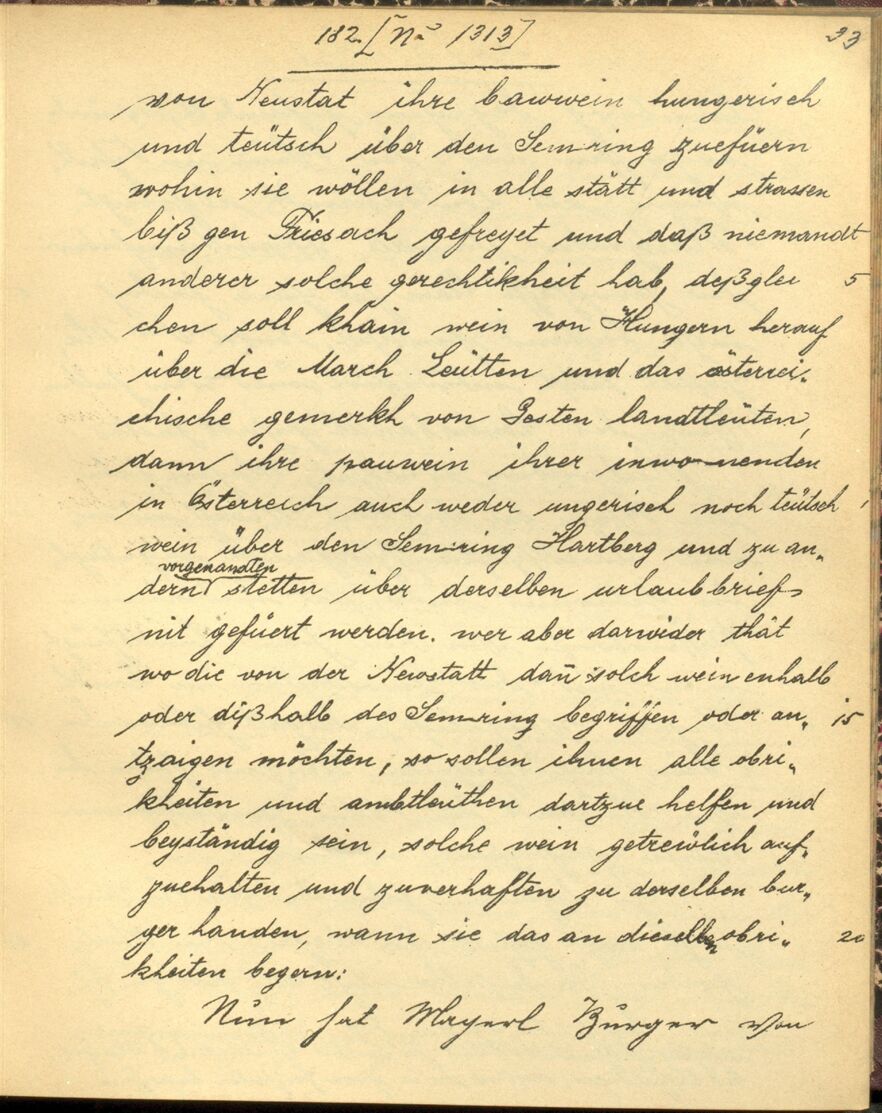 182. [No 1313] 93
von Neustat ihre bawwein hungerisch
und teütsch über den Semring zuefüern
wohin sie wöllen in alle stätt und strassen
biß gen Friesach gefreyet und daß niemandt
anderer solche gerechtikheit hab, deßglei 5
chen soll khain wein von Hungern herauf
über die March Leütten und das österrei„
chische gemerkh von Gesten landtleüten,
dann ihre pauwein ihrer inwonenden
in Österreich auch weder ungerisch noch teütsch
wein über den Semring Hartberg und zu an„
vorgenandten
dern stetten über derselben urlaubbrief
nit gefüert werden. wer aber darwider thät
wo die von der Newstatt dañ solch wein enhalb
oder dißhalb des Semring begriffen oder an„ 15
tzaigen möchten, so sollen ihnen alle obri„
kheiten und ambtleüthen dartzue helfen und
beyständig sein, solche wein getrewlich auf„
zuehalten und zuverhaften zu derselben bur„
ger handen, wann sie das an dieselben obri„ 20
kheiten begern:
Nun hat Mayerl Burger von